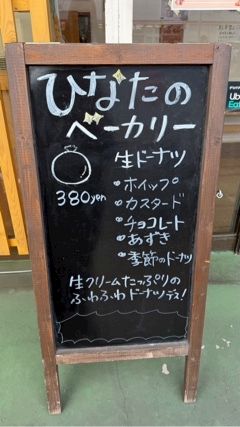 ひなたの
ベーカリー
生ドーナツ
・ホイップ
・カスタード
・チョコレート
・あずき
・季節のドーナツ
380yen
生クリームたっぷりの
ふわふわドーナツデス!
Uber
Eats